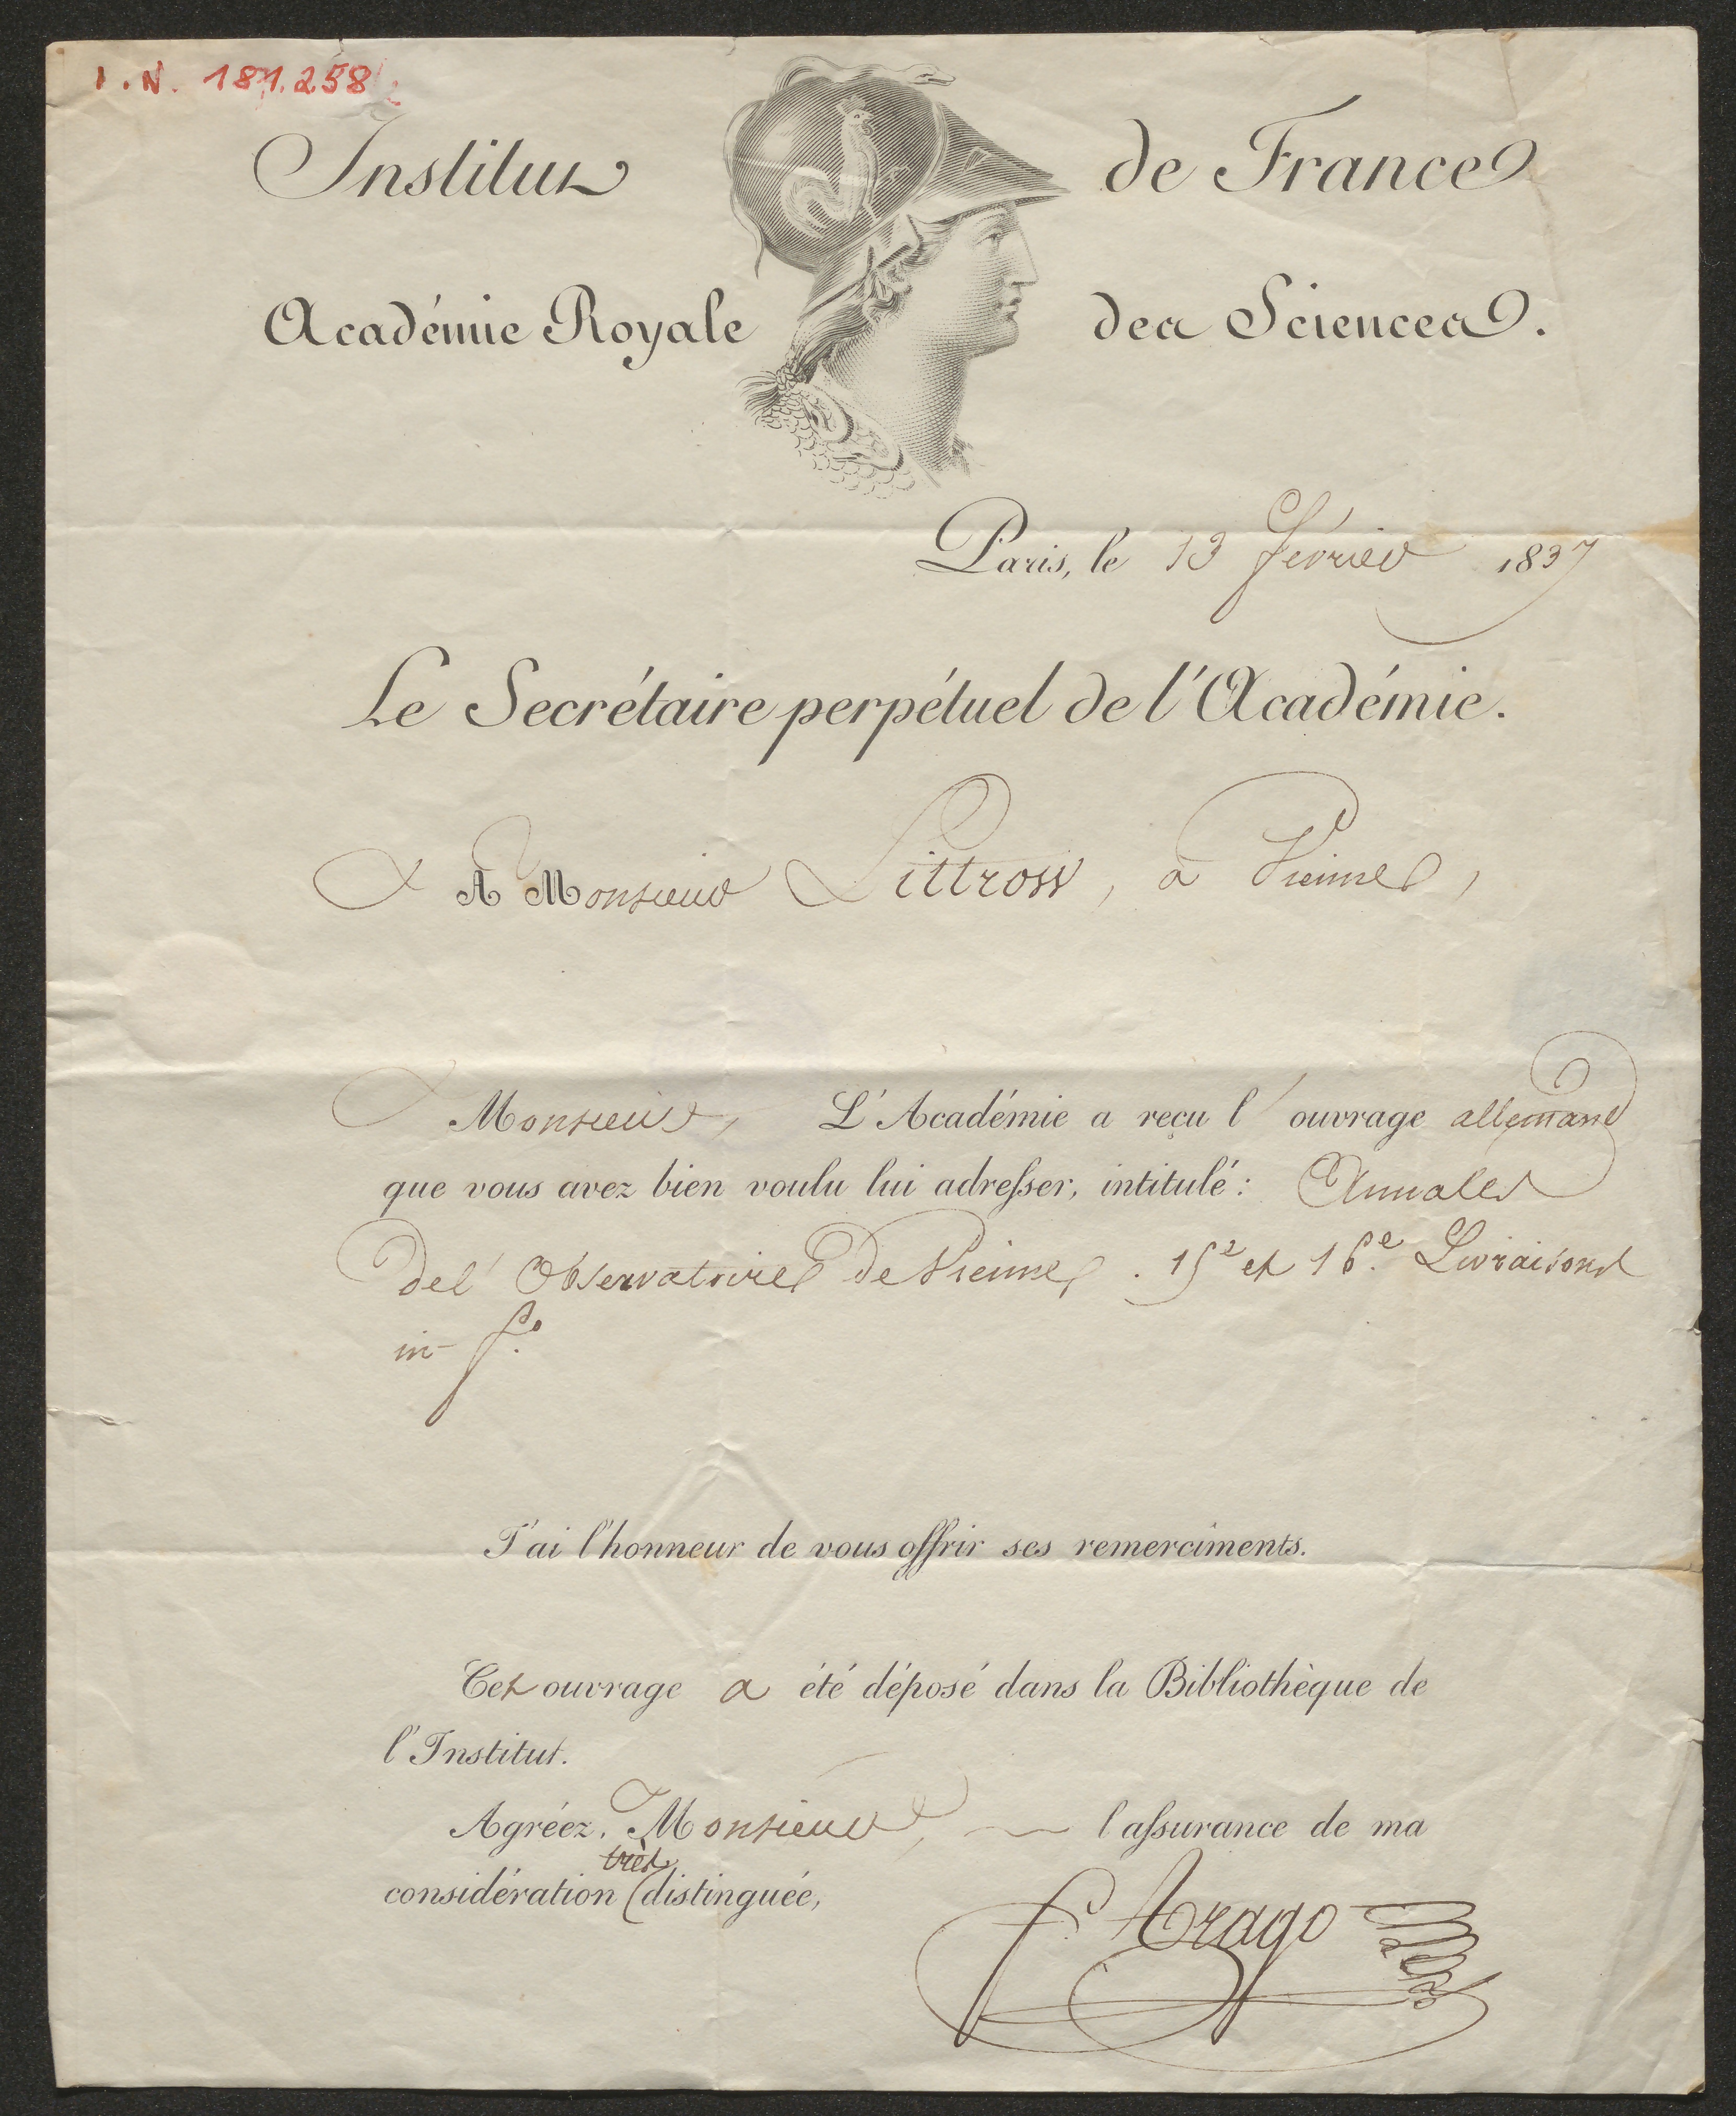 I.N. 181.258
Institut de France
Académie Royale des Sciences.
Paris, le 13 février 1837
Le Secrétaire perpétuel de l'Académie.
A Monsieur Littrow, à Vienne,
Monsieur, L'Académie a reçu l' ouvrage allemand
que vous avez bien voulu lui adreſser, intitulé: Annales
de l'Observatoire de Vienne. 15e et 16e. Livraisons
in-fo.
J'ai l'honneur de vous offrir ses remerciments.
Cet ouvrage a été déposé dans la Bibliothèque de
l'Institut.
Agréez, Monsieur, l'aſsurance de ma
très
considération distinguée,
F. Arago